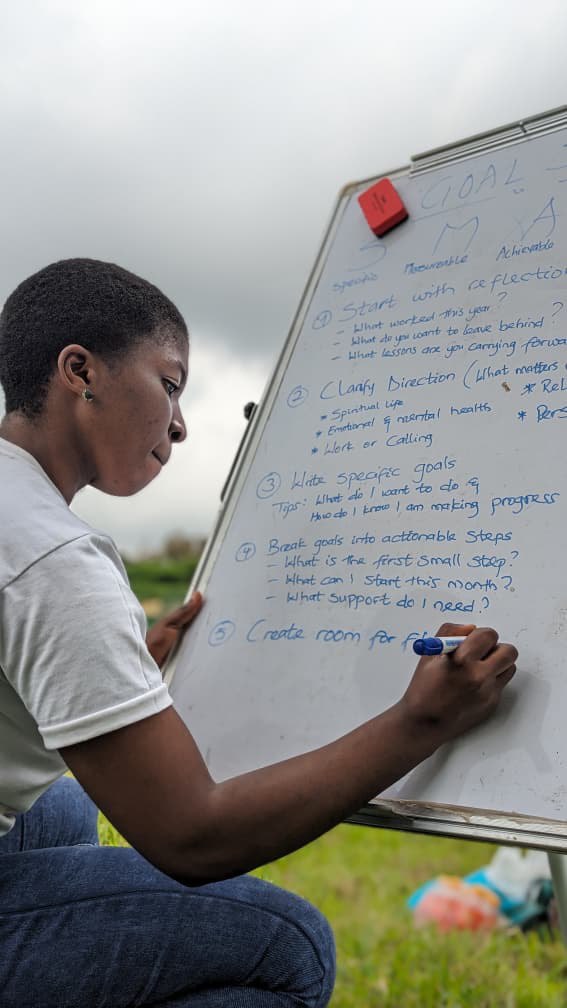 GOAL
S M A
Specific Measureable Achievable
① Start with reflectio
- What worked this year?
- What do you want to leave behind?
- What lessons are you carrying forwa
② Clarify Direction (What matters
* Spiritual life * Rel
* Emotional & mental health * Pers
* Work or Calling
③ Write specific goals
Tips: What do I want to do &
How do I know I am making progress
④ Break goals into actionable steps
- What is the first small step?
- What can I start this month?
- What support do I need?
⑤ Create room for